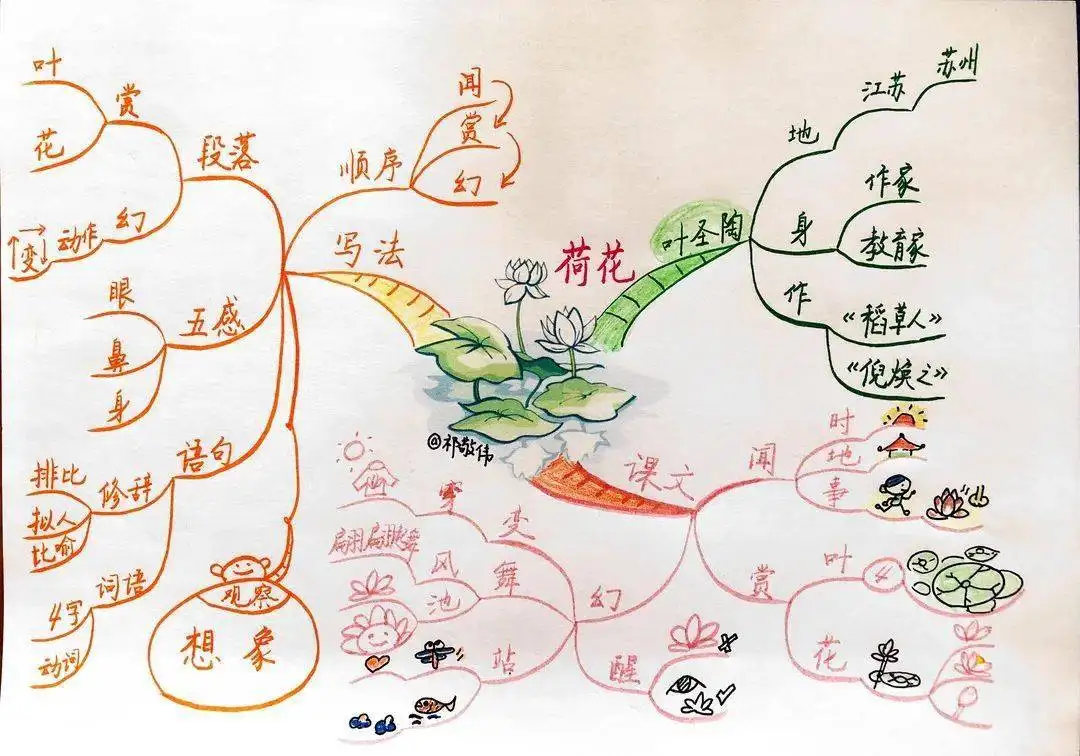 荷花
@祁敬伟
叶圣陶
地
江苏
苏州
身
作家
教育家
作
《稻草人》
《倪焕之》
课文
闻
时
地
事
赏
叶
4
花
幻
变
穿
仙
舞
风
翩翩起舞
池
站
醒
写法
顺序
闻
赏
幻
段落
赏
叶
花
幻
动作
变
五感
眼
鼻
身
语句
修辞
排比
拟人
比喻
词语
4字
动词
观察
想象